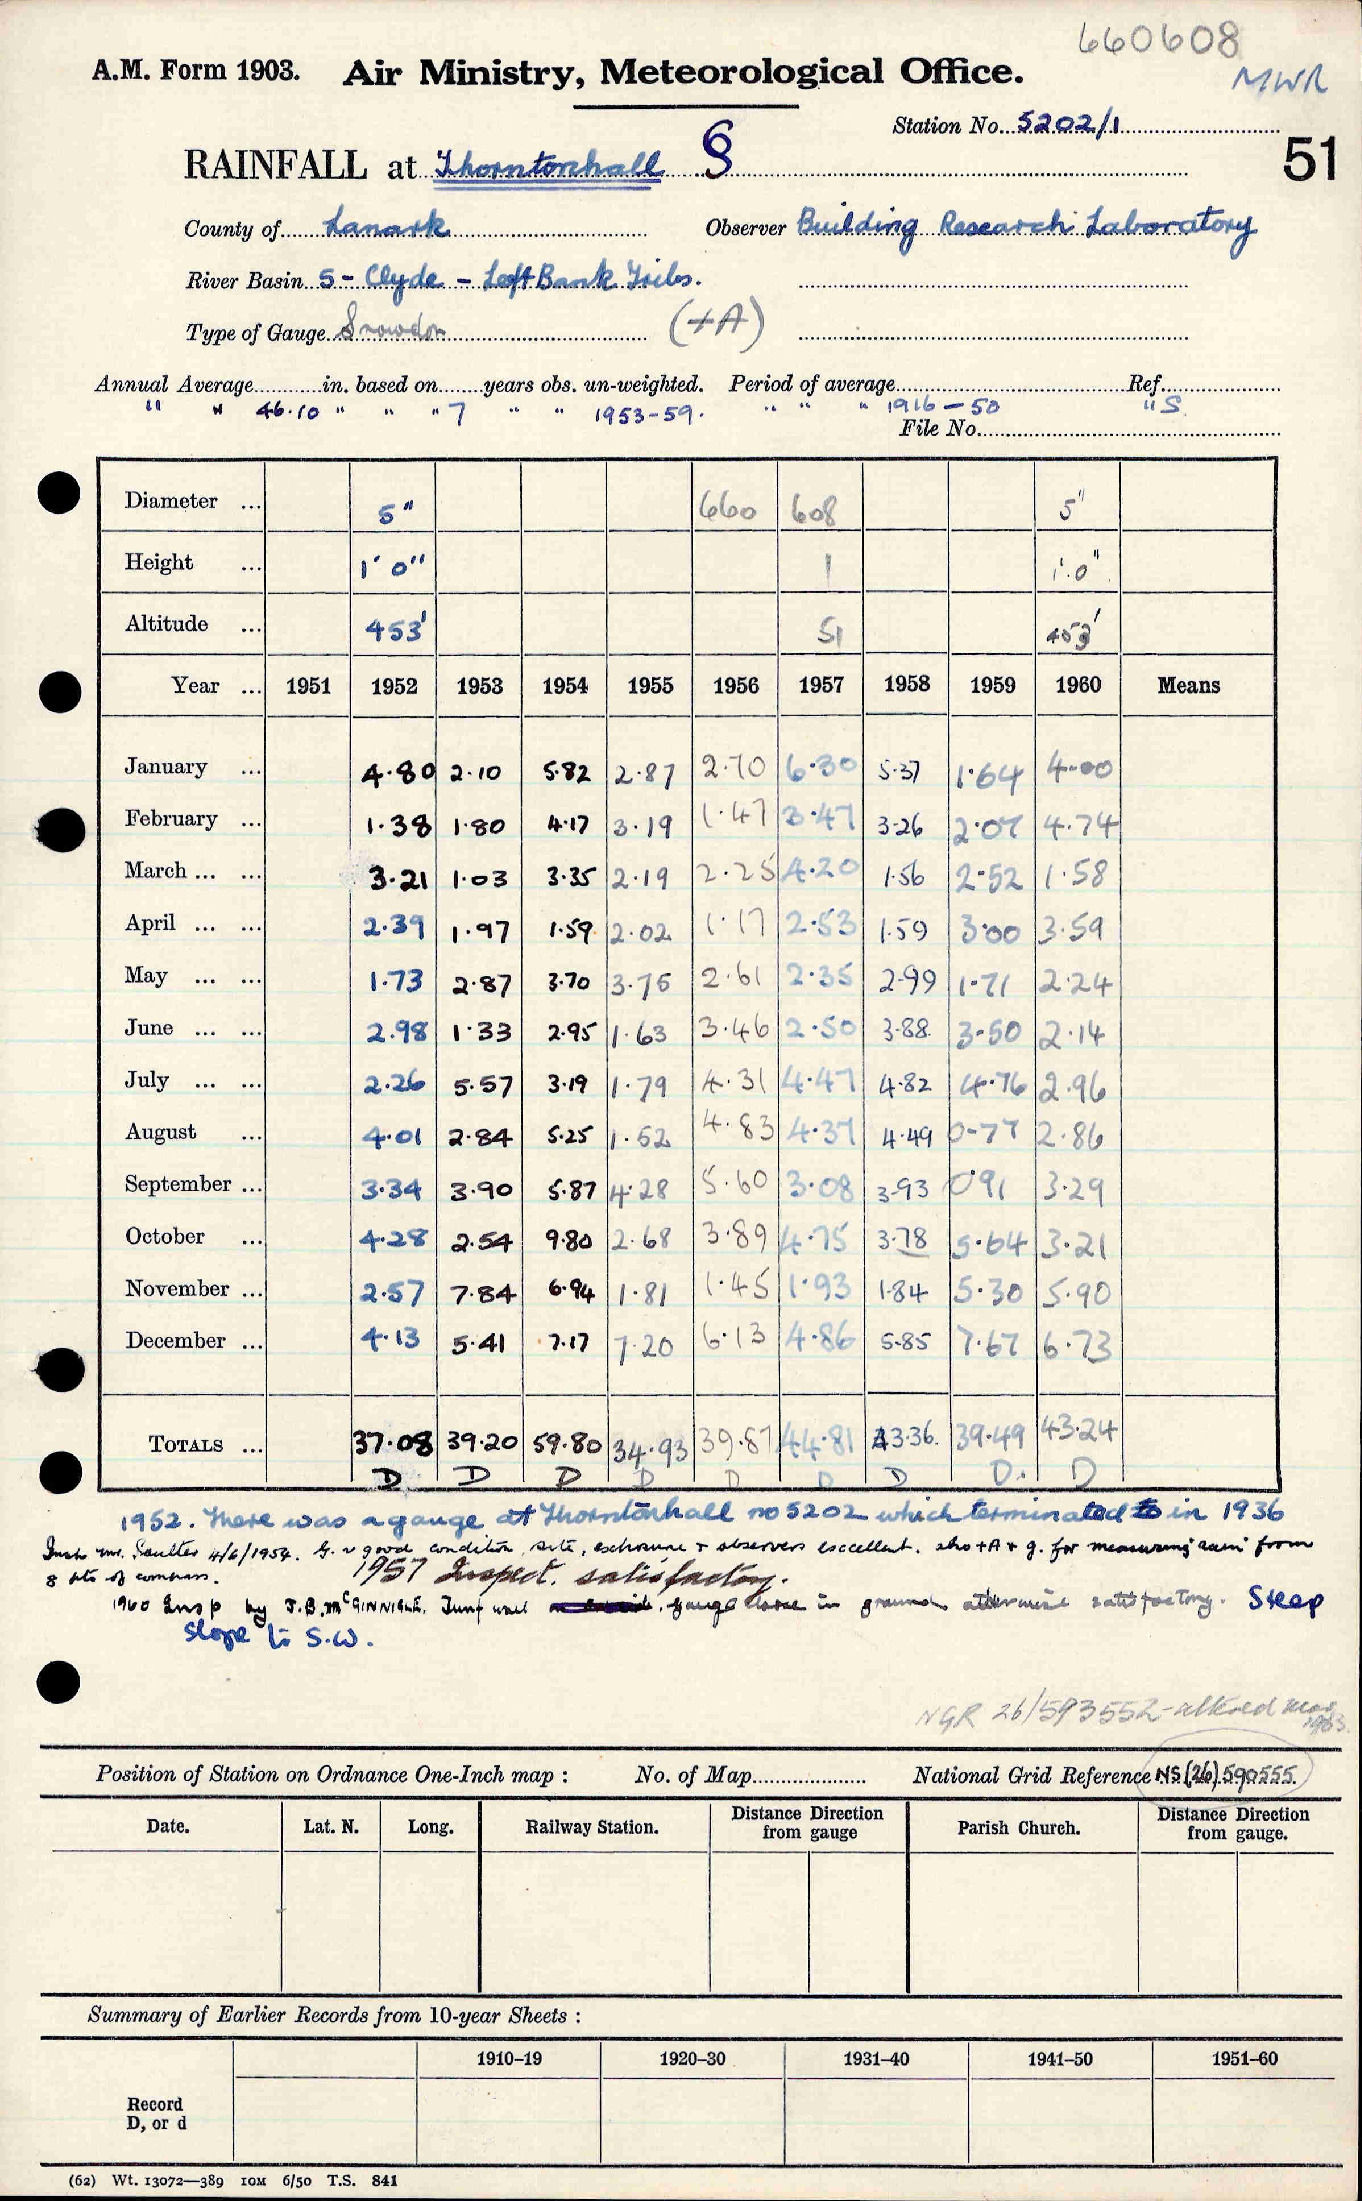 660608
A.M. Form 1903. Air Ministry, Meteorological Office.
MWR
Station No. 5202/1
51
RAINFALL at Thorntonhall §
County of Lanark Observer Building Research Laboratory
River Basin 5 - Clyde - Left Bank Tribs.
Type of Gauge Snowdon (+A)
Annual Average in. based on years obs. un-weighted. Period of average Ref.
" " 46.10 " " " 7 " " 1953-59. " " " 1916-50 " S.
File No.
Diameter ... 5" 660 608 5"
Height ... 1' 0" 1 1'.0"
Altitude ... 453' 51 453'
Year ... 1951 1952 1953 1954 1955 1956 1957 1958 1959 1960 Means
January ... 4.80 2.10 5.82 2.87 2.70 6.30 5.37 1.64 4.00
February ... 1.38 1.80 4.17 3.19 1.47 3.47 3.26 2.07 4.74
March ... ... 3.21 1.03 3.35 2.19 2.25 4.20 1.56 2.52 1.58
April ... ... 2.39 1.97 1.59 2.02 1.17 2.53 1.59 3.00 3.59
May ... ... 1.73 2.87 3.70 3.75 2.61 2.35 2.99 1.71 2.24
June ... ... 2.98 1.33 2.95 1.63 3.46 2.50 3.88 3.50 2.14
July ... ... 2.26 5.57 3.19 1.79 4.31 4.47 4.82 4.76 2.96
August ... 4.01 2.84 5.25 1.52 4.83 4.37 4.49 0.77 2.86
September ... 3.34 3.90 5.87 4.28 5.60 3.08 3.93 0.91 3.29
October ... 4.28 2.54 9.80 2.68 3.89 4.75 3.78 5.64 3.21
November ... 2.57 7.84 6.94 1.81 1.45 1.93 1.84 5.30 5.90
December ... 4.13 5.41 7.17 7.20 6.13 4.86 5.85 7.67 6.73
TOTALS ... 37.08 39.20 59.80 34.93 39.87 44.81 43.36 39.49 43.24
D D D D D D D D. D
1952. There was a gauge at Thorntonhall no 5202 which terminated in 1936
Insp. Mr. Saulter 4/6/1954. G. in good condition, site, exchosure + observers excellent. also +A + g. for measuring 'rain' from
8 pts of compass.
1957 Inspect. satisfactory.
1960 Insp by J.B. McGINNIGLE. gauge loose in ground otherwise satisfactory. Steep
slope to S.W.
NGR 26/593552 - altered Mar 1963.
Position of Station on Ordnance One-Inch map : No. of Map National Grid Reference NS(26)590555
Date. Lat. N. Long. Railway Station. Distance Direction from gauge Parish Church. Distance Direction from gauge.
Summary of Earlier Records from 10-year Sheets :
1910–19 1920–30 1931–40 1941–50 1951–60
Record
D, or d
(62) Wt. 13072—389 10M 6/50 T.S. 841